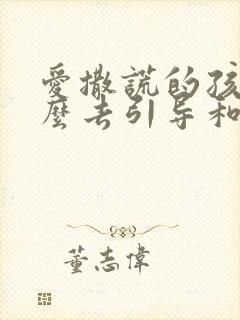 愛撒謊的孩
麼去引导和
董志偉